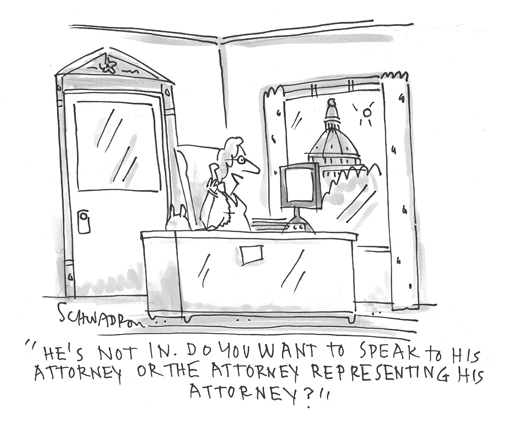 SCHWADRON
"HE'S NOT IN. DO YOU WANT TO SPEAK TO HIS
ATTORNEY OR THE ATTORNEY REPRESENTING HIS
ATTORNEY?"